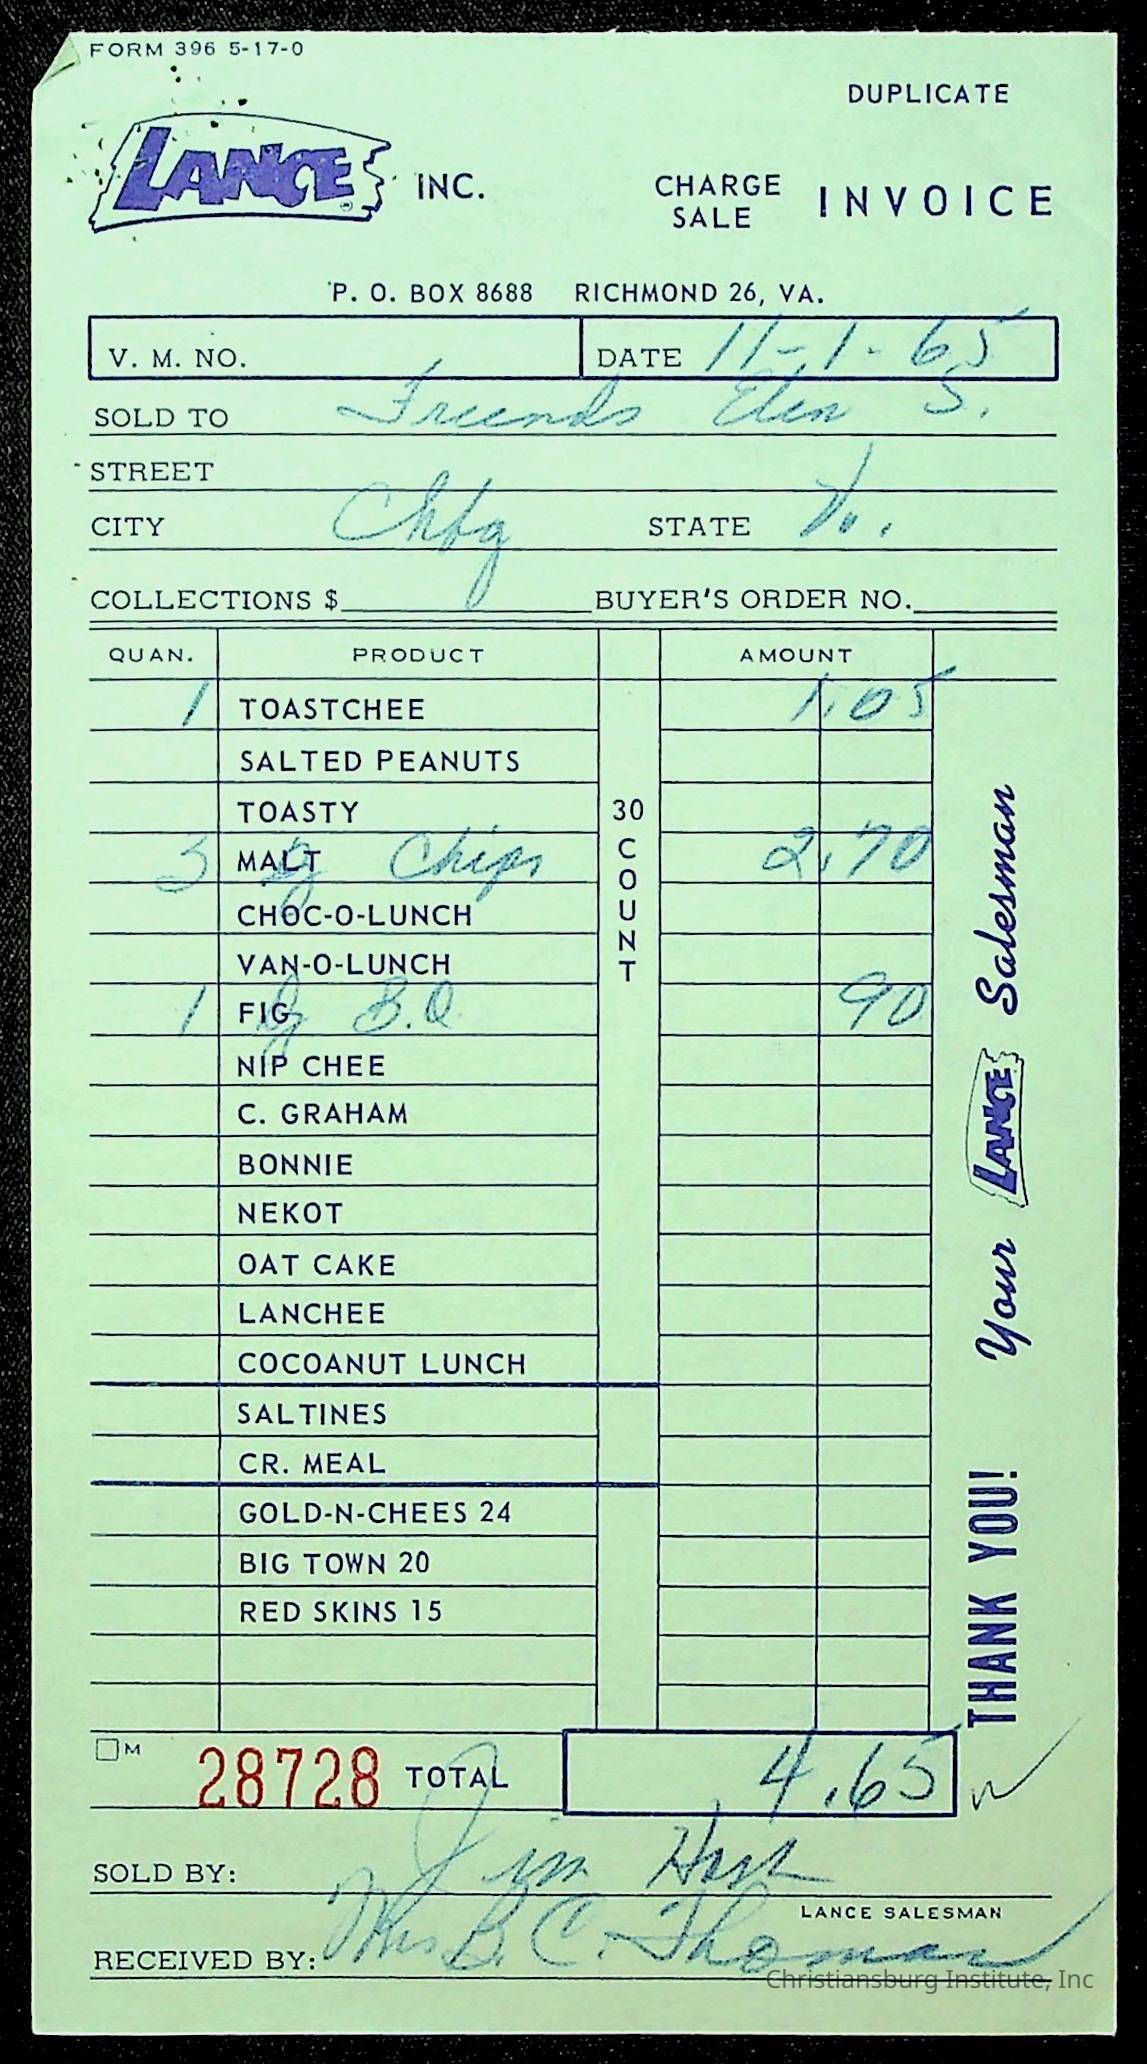 FORM 396 5-17-0
DUPLICATE
LANCE INC.
CHARGE SALE INVOICE
P. O. BOX 8688 RICHMOND 26, VA.
V. M. NO. DATE 11-1-65
SOLD TO Friends Elem S.
STREET
CITY Chbg STATE Va.
COLLECTIONS $ BUYER'S ORDER NO.
QUAN. PRODUCT AMOUNT
1 TOASTCHEE 1.05
SALTED PEANUTS
TOASTY 30 COUNT
3 MALT Chips 2.70
CHOC-O-LUNCH
VAN-O-LUNCH
1 FIG B.Q 90
NIP CHEE
C. GRAHAM
BONNIE
NEKOT
OAT CAKE
LANCHEE
COCOANUT LUNCH
SALTINES
CR. MEAL
GOLD-N-CHEES 24
BIG TOWN 20
RED SKINS 15
THANK YOU! Your LANCE Salesman
M 28728 TOTAL 4.65
SOLD BY: Jim
LANCE SALESMAN
RECEIVED BY: Mrs B. C. Thomas
Christiansburg Institute, Inc